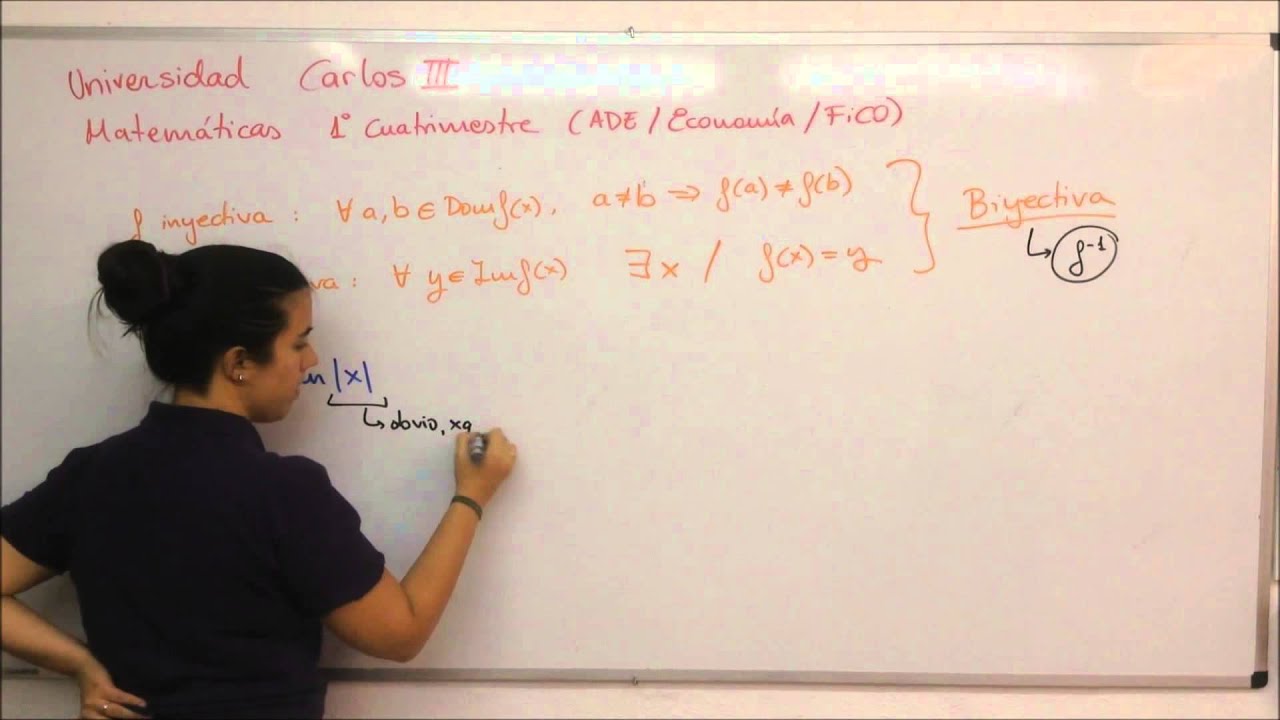 Universidad Carlos III
Matemáticas 1º Cuatrimestre (ADE/Economía/FiCO)
f inyectiva : ∀ a,b ∈ Dom f(x), a≠b ⇒ f(a) ≠ f(b)
va : ∀ y ∈ Im f(x) ∃ x / f(x) = y
Biyectiva
↳ f⁻¹
|x|
↳ obvio, xq